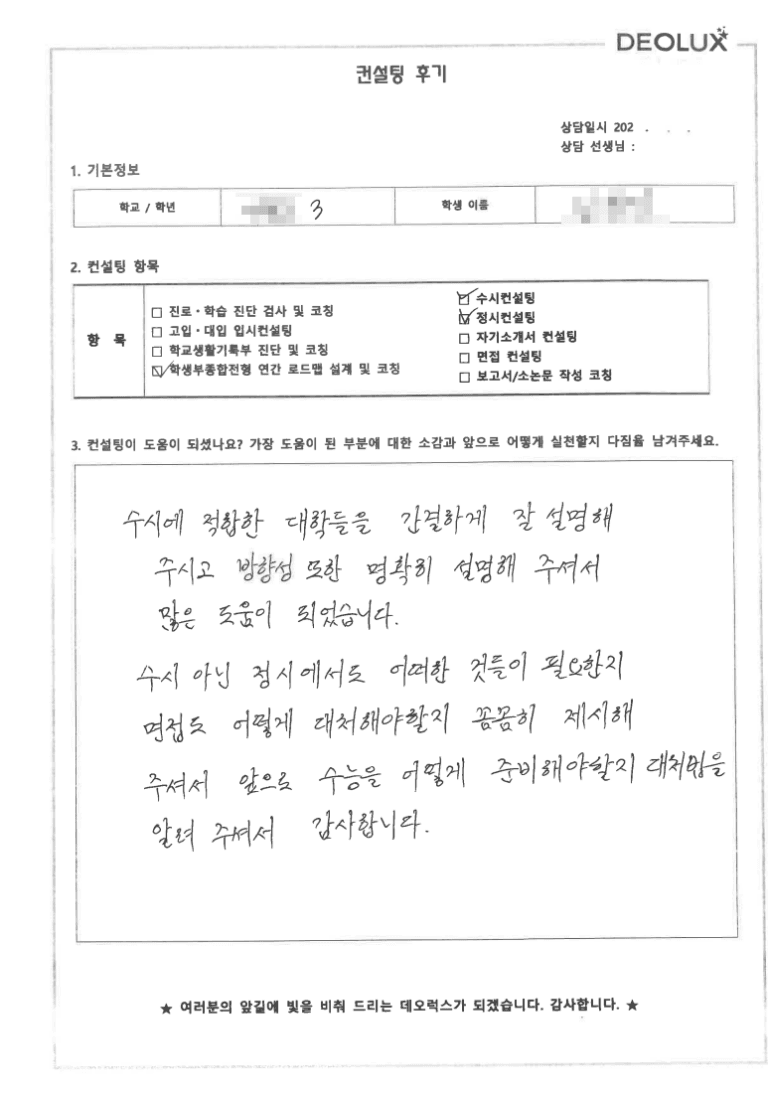 DEOLUX
컨설팅 후기
상담일시 202 . . .
상담 선생님 :
1. 기본정보
학교 / 학년 3 학생 이름
2. 컨설팅 항목
항 목
□ 진로·학습 진단 검사 및 코칭
□ 고입·대입 입시컨설팅
□ 학교생활기록부 진단 및 코칭
☑ 학생부종합전형 연간 로드맵 설계 및 코칭
☑ 수시컨설팅
☑ 정시컨설팅
□ 자기소개서 컨설팅
□ 면접 컨설팅
□ 보고서/소논문 작성 코칭
3. 컨설팅이 도움이 되셨나요? 가장 도움이 된 부분에 대한 소감과 앞으로 어떻게 실천할지 다짐을 남겨주세요.
수시에 적합한 대학들을 간결하게 잘 설명해
주시고 방향성 또한 명확히 설명해 주셔서
많은 도움이 되었습니다.
수시 아닌 정시에서도 어떠한 것들이 필요한지
면접도 어떻게 대처해야할지 꼼꼼히 제시해
주셔서 앞으로 수능을 어떻게 준비해야할지 대처법을
알려 주셔서 감사합니다.
★ 여러분의 앞길에 빛을 비춰 드리는 데오럭스가 되겠습니다. 감사합니다. ★